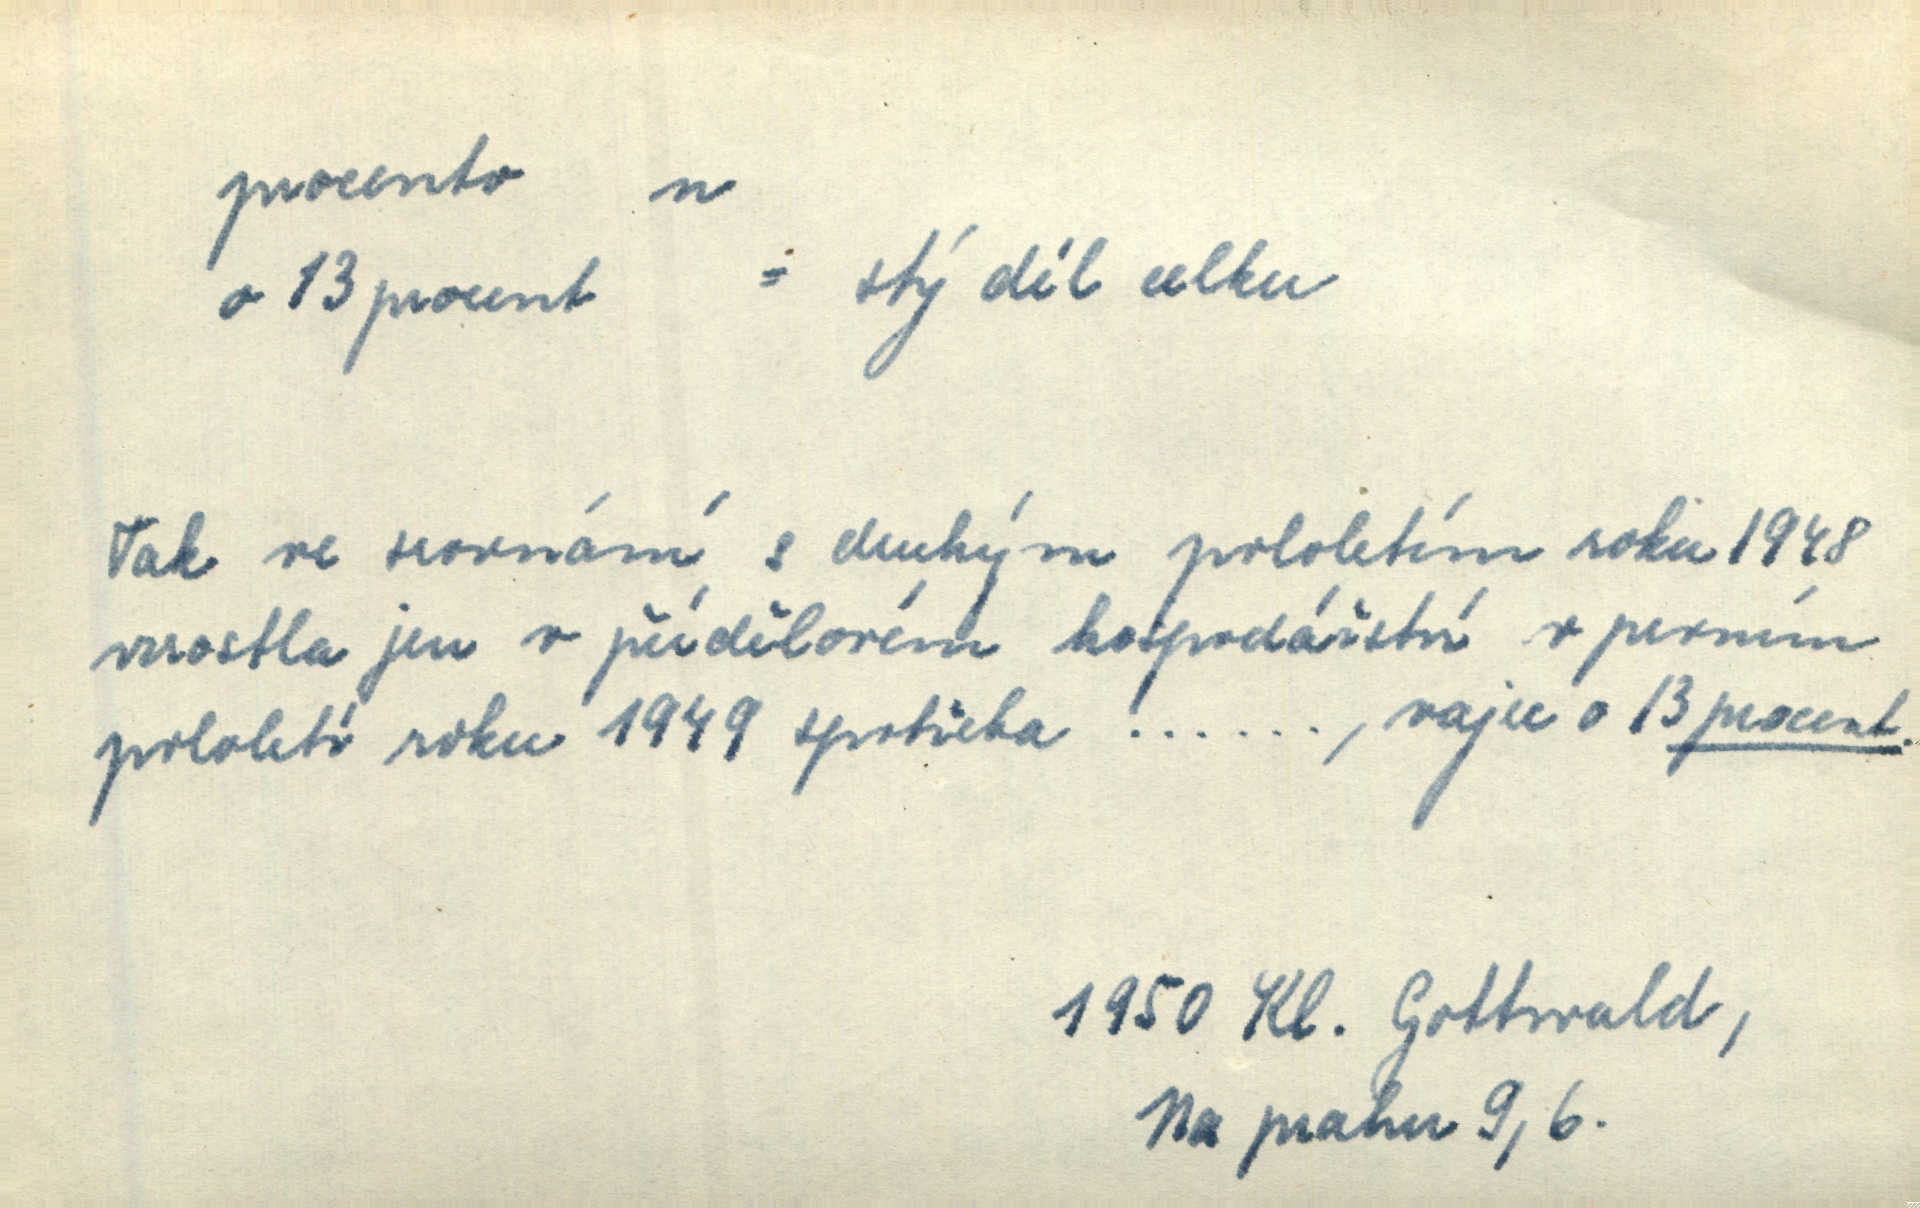 procento n
o 13 procent = stý díl celku
Tak ve srovnání s druhým pololetím roku 1948
vzrostla jen v přídělovém hospodářství v prvním
pololetí roku 1949 spotřeba ......, vajec o 13 procent.
1950 Kl. Gottwald,
Na prahu 9, 6.